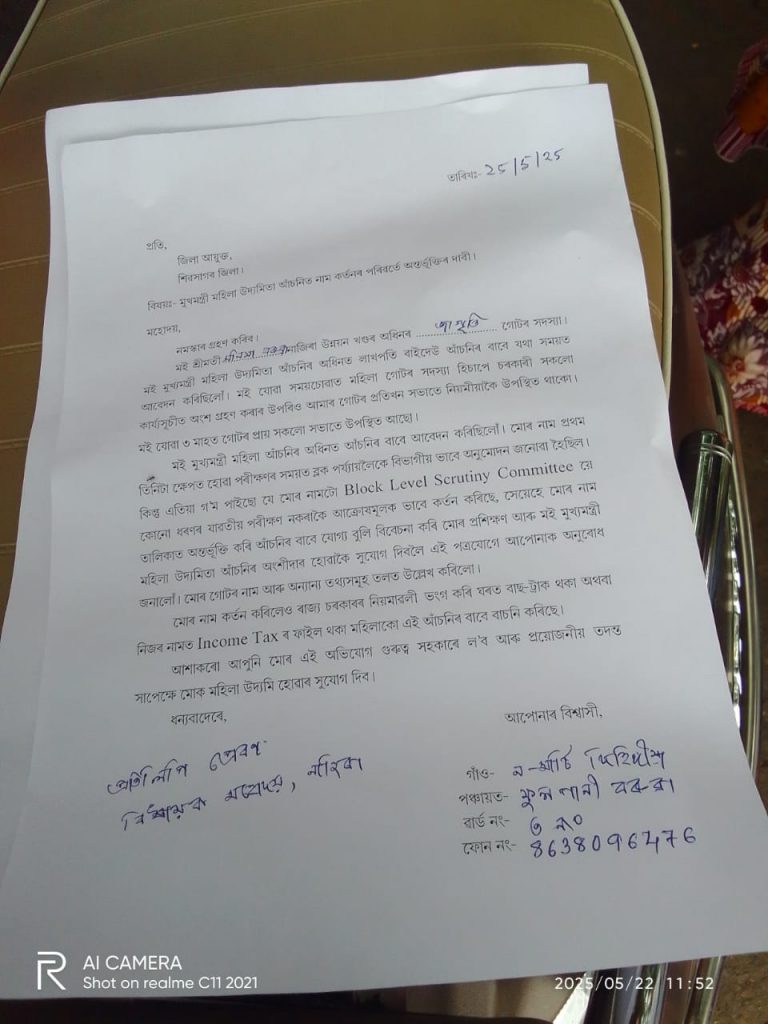 তাৰিখঃ- 25/5/25
প্ৰতি,
জিলা আয়ুক্ত,
শিৱসাগৰ জিলা।
বিষয়ঃ- মুখ্যমন্ত্ৰী মহিলা উদ্যমিতা আঁচনিত নাম কৰ্তনৰ পৰিৱৰ্তে অন্তৰ্ভূক্তিৰ দাবী।
মহোদয়,
নমস্কাৰ গ্ৰহণ কৰিব।
মই শ্ৰীমতী নাজিৰা উন্নয়ন খণ্ডৰ অধিনৰ জাগৃতি গোটৰ সদস্যা।
মই মুখ্যমন্ত্ৰী মহিলা উদ্যমিতা আঁচনিৰ অধিনত লাখপতি বাইদেউ আঁচনিৰ বাবে যথা সময়ত
আবেদন কৰিছিলোঁ। মই যোৱা সময়চোৱাত মহিলা গোটৰ সদস্যা হিচাপে চৰকাৰী সকলো
কাৰ্য্যসূচীত অংশ গ্ৰহণ কৰাৰ উপৰিও আমাৰ গোটৰ প্ৰতিখন সভাতে নিয়মীয়াকৈ উপস্থিত থাকো।
মই যোৱা ৩ মাহত গোটৰ প্ৰায় সকলো সভাতে উপস্থিত আছো।
মই মুখ্যমন্ত্ৰী মহিলা আঁচনিৰ অধিনত আঁচনিৰ বাবে আবেদন কৰিছিলোঁ। মোৰ নাম প্ৰথম
তিনিটা ক্ষেপত হোৱা পৰীক্ষণৰ সময়ত ব্লক পৰ্য্যায়লৈকে বিভাগীয় ভাবে অনুমোদন জনোৱা হৈছিল।
কিন্তু এতিয়া গ'ম পাইছো যে মোৰ নামটো Block Level Scrutiny Committee য়ে
কোনো ধৰণৰ যাৱতীয় পৰীক্ষণ নকৰাকৈ আক্ৰোষমূলক ভাবে কৰ্তন কৰিছে, সেয়েহে মোৰ নাম
তালিকাত অন্তৰ্ভূক্তি কৰি আঁচনিৰ বাবে যোগ্য বুলি বিবেচনা কৰি মোৰ প্ৰশিক্ষণ আৰু মই মুখ্যমন্ত্ৰী
মহিলা উদ্যমিতা আঁচনিৰ অংশীদাৰ হোৱাকৈ সুযোগ দিবলৈ এই পত্ৰযোগে আপোনাক অনুৰোধ
জনালোঁ। মোৰ গোটৰ নাম আৰু অন্যান্য তথ্যসমূহ তলত উল্লেখ কৰিলো।
মোৰ নাম কৰ্তন কৰিলেও ৰাজ্য চৰকাৰৰ নিয়মাৱলী ভংগ কৰি ঘৰত বাছ-ট্ৰাক থকা অথবা
নিজৰ নামত Income Tax ৰ ফাইল থকা মহিলাকো এই আঁচনিৰ বাবে বাচনি কৰিছে।
আশাকৰো আপুনি মোৰ এই অভিযোগ গুৰুত্ব সহকাৰে ল'ব আৰু প্ৰয়োজনীয় তদন্ত
সাপেক্ষে মোক মহিলা উদ্যমি হোৱাৰ সুযোগ দিব।
ধন্যবাদেৰে,
আপোনাৰ বিশ্বাসী,
প্ৰতিলিপি প্ৰেৰণ
বিধায়ক মহোদয়, নাজিৰা
গাঁও- ন-মাটি
পঞ্চায়ত- ফুলপানী বৰুৱা
ৱাৰ্ড নং- ৩ নং
ফোন নং- 8638096476
AI CAMERA
Shot on realme C11 2021
2025/05/22 11:52